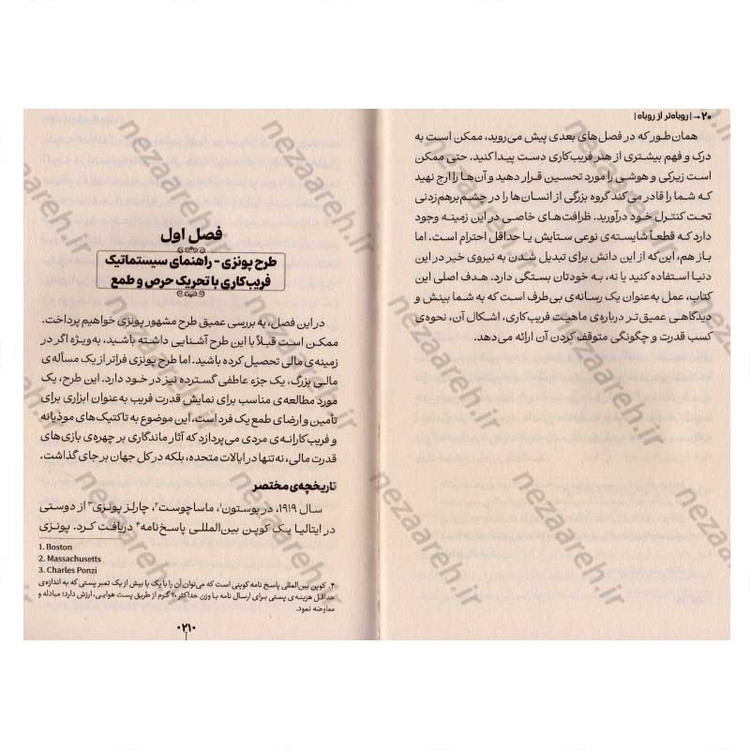 ۲۰ → | روباه‌تر از روباه |
همان‌طور که در فصل‌های بعدی پیش می‌روید، ممکن است به
درک و فهم بیشتری از هنر فریب‌کاری دست پیدا کنید. حتی ممکن
است زیرکی و هوشی را مورد تحسین قرار دهید و آن‌ها را ارج نهید
که شما را قادر می‌کند گروه بزرگی از انسان‌ها را در چشم برهم‌زدنی
تحت کنترل خود درآورید. ظرافت‌های خاصی در این زمینه وجود
دارد که قطعاً شایسته‌ی نوعی ستایش یا حداقل احترام است. اما
باز هم، این که از این دانش برای تبدیل شدن به نیروی خیر در این
دنیا استفاده کنید یا نه، به خودتان بستگی دارد. هدف اصلی این
کتاب، عمل به‌عنوان یک رسانه‌ی بی‌طرف است که به شما بینش و
دیدگاهی عمیق‌تر درباره‌ی ماهیت فریب‌کاری، اشکال آن، نحوه‌ی
کسب قدرت و چگونگی متوقف کردن آن ارائه می‌دهد.
فصل اول
طرح پونزی - راهنمای سیستماتیک
فریب‌کاری با تحریک حرص و طمع
در این فصل، به بررسی عمیق طرح مشهور پونزی خواهیم پرداخت.
ممکن است قبلاً با این طرح آشنایی داشته باشید، به‌ویژه اگر در
زمینه‌ی مالی تحصیل کرده باشید. اما طرح پونزی فراتر از یک مسأله‌ی
مالی بزرگ، یک جزء عاطفی گسترده نیز در خود دارد. این طرح، یک
مورد مطالعه‌ی مناسب برای نمایش قدرت فریب به‌عنوان ابزاری برای
تأمین و ارضای طمع یک فرد است. این موضوع به تاکتیک‌های موذیانه
و فریب‌کارانه‌ی مردی می‌پردازد که آثار ماندگاری بر چهره‌ی بازی‌های
قدرت مالی، نه‌تنها در ایالات متحده، بلکه در کل جهان بر جای گذاشت.
تاریخچه‌ی مختصر
سال ۱۹۱۹، در بوستون۱، ماساچوست۲، چارلز پونزی۳ از دوستی
در ایتالیا یک کوپن بین‌المللی پاسخ‌نامه۴ دریافت کرد. پونزی
1. Boston
2. Massachusetts
3. Charles Ponzi
۴. کوپن بین‌المللی پاسخ نامه کوپنی است که می‌توان آن را با یک یا بیش از یک تمبر پستی که به اندازه‌ی
حداقل هزینه‌ی پستی برای ارسال نامه با وزن حداکثر ۲۰ گرم از طریق پست هوایی، ارزش دارد؛ مبادله و
معاوضه نمود.
۰۲۱۰
nezaareh.ir
nezaareh.ir
nezaareh.ir
nezaareh.ir
nezaareh.ir
nezaareh.ir
nezaareh.ir
nezaareh.ir
nezaareh.ir